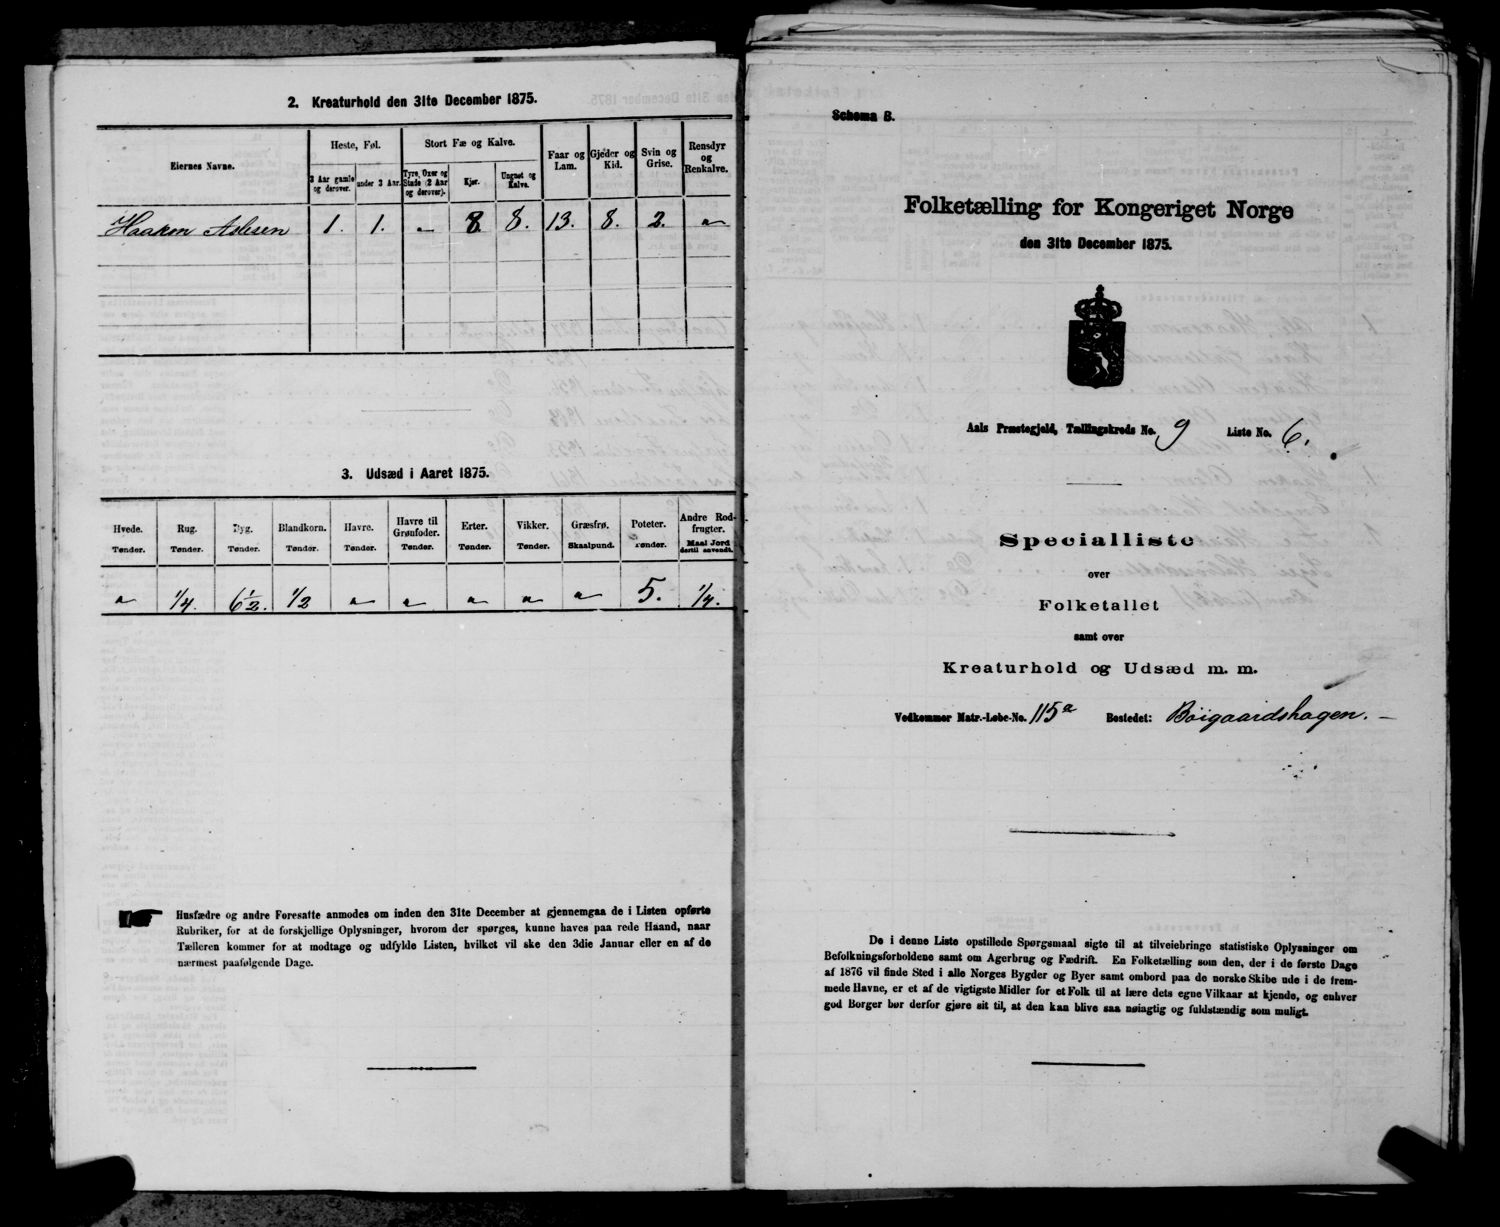 2. Kreaturhold den 31te December 1875.
Eiernes Navne.
Heste, Føl.
3 Aar gamle og derover.
under 3 Aar.
Stort Fæ og Kalve.
Tyre, Oxer og Stude (2 Aar og derover).
Kjør.
Ungnøt og Kalve.
Faar og Lam.
Gjeder og Kid.
Svin og Grise.
Rensdyr og Renkalve.
Haaken Aslesen 1. 1. " 8 8. 13. 8. 2. "
3. Udsæd i Aaret 1875.
Hvede. Tønder.
Rug. Tønder.
Byg. Tønder.
Blandkorn. Tønder.
Havre. Tønder.
Havre til Grønfoder. Tønder.
Erter. Tønder.
Vikker. Tønder.
Græsfrø. Skaalpund.
Poteter. Tønder.
Andre Rodfrugter. Maal Jord dertil anvendt.
" 1/4. 6 1/2. 1/2 " " " " " 5. 1/4.
Husfædre og andre Foresatte anmodes om inden den 31te December at gjennemgaa de i Listen opførte
Rubriker, for at de forskjellige Oplysninger, hvorom der spørges, kunne haves paa rede Haand, naar
Tælleren kommer for at modtage og udfylde Listen, hvilket vil ske den 3die Januar eller en af de
nærmest paafølgende Dage.
Schema B.
Folketælling for Kongeriget Norge
den 31te December 1875.
Aals Præstegjeld, Tællingskreds No. 9 Liste No. 6.
Specialliste
over
Folketallet
samt over
Kreaturhold og Udsæd m. m.
Vedkommer Matr.-Løbe-No. 115a Bostedet: Böigaardshagen.
De i denne Liste opstillede Spørgsmaal sigte til at tilveiebringe statistiske Oplysninger om
Befolkningsforholdene samt om Agerbrug og Fædrift. En Folketælling som den, der i de første Dage
af 1876 vil finde Sted i alle Norges Bygder og Byer samt ombord paa de norske Skibe ude i de frem-
mede Havne, er et af de vigtigste Midler for et Folk til at lære dets egne Vilkaar at kjende, og enhver
god Borger bør derfor gjøre sit til, at den kan blive saa nøiagtig og fuldstændig som muligt.